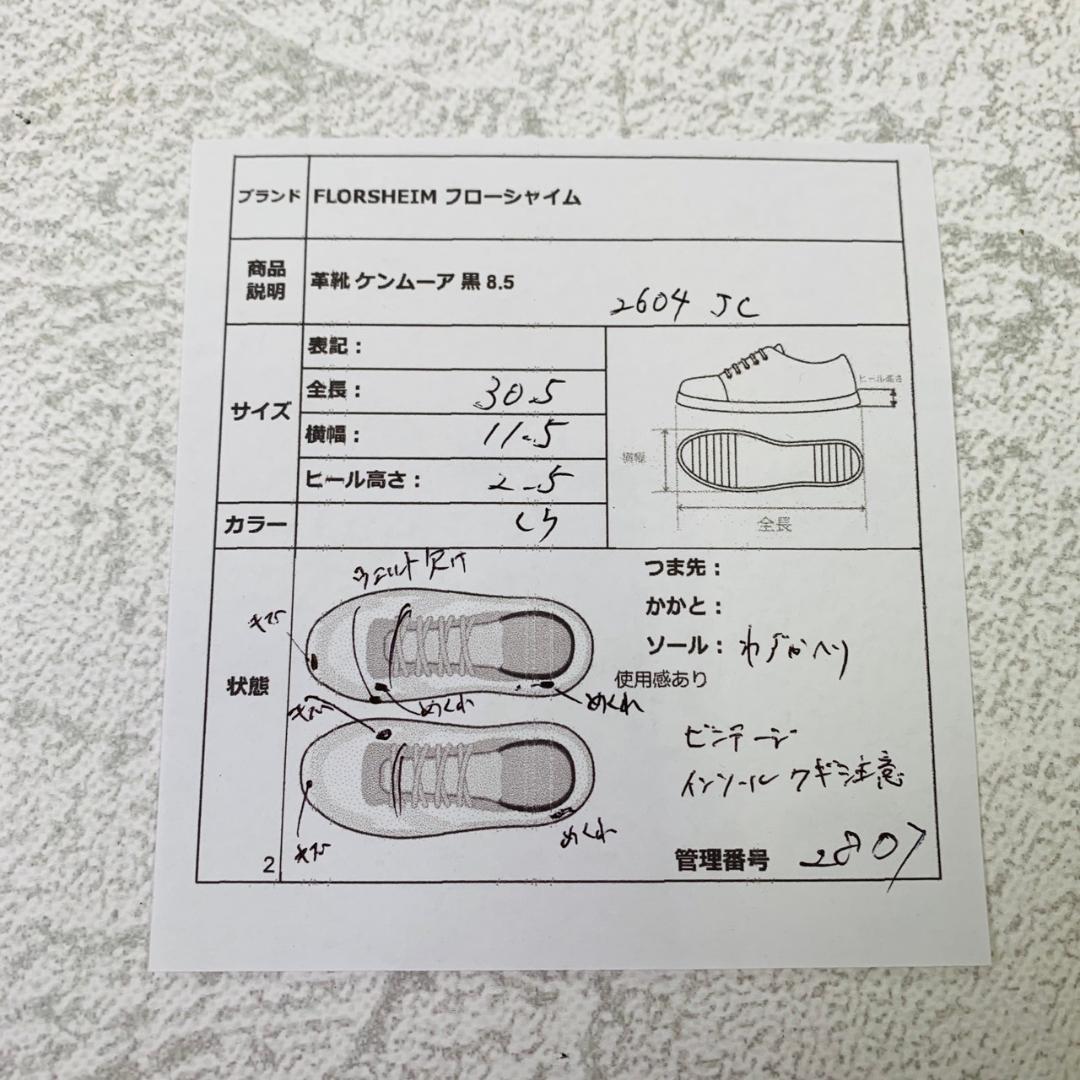 ブランド FLORSHEIM フローシャイム
商品説明 革靴 ケンムーア 黒 8.5
2604 JC
サイズ
表記：
全長： 30.5
横幅： 11.5
ヒール高さ： 2.5
ヒール高さ
横幅
全長
カラー
状態
ウェルト欠け
キズ
めくれ
めくれ
キズ
キズ
めくれ
つま先：
かかと：
ソール： わずかヘリ
使用感あり
ビンテージ
インソール クギ注意
管理番号 2807
2